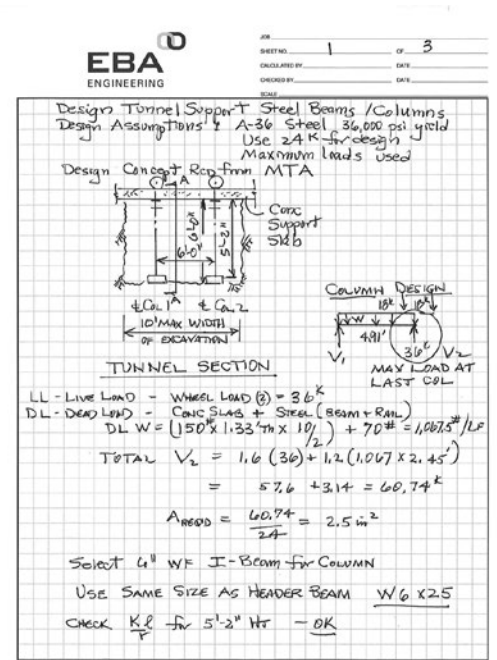 EBA
ENGINEERING
JOB
SHEET NO. 1 OF 3
CALCULATED BY DATE
CHECKED BY DATE
SCALE
Design Tunnel Support Steel Beams / Columns
Design Assumptions: A-36 Steel 36,000 psi yield
Use 24K for design
Maximum loads used
Design Concept Rcp from MTA
A
Conc
Support
Slab
6'-0"
6'-0"
5'-2"
℄ Col 1 A ℄ Col. 2
10' MAX WIDTH
OF EXCAVATION
TUNNEL SECTION
COLUMN DESIGN
18K 18K
W
4.91'
V1 36K V2
MAX LOAD AT
LAST COL
LL - LIVE LOAD - WHEEL LOAD (2) = 36K
DL - DEAD LOAD - CONC SLAB + STEEL (BEAM + RAIL)
DL W = (150# x 1.33' TH x 10/2) + 70# = 1,067.5#/LF
TOTAL V2 = 1.6 (36) + 1.2 (1.067 x 2.45')
= 57.6 + 3.14 = 60.74K
AREQD = 60.74/24 = 2.5 in2
Select 6" WF I-Beam for COLUMN
USE SAME SIZE AS HEADER BEAM W6 x 25
CHECK Kl/r for 5'-2" HT - OK